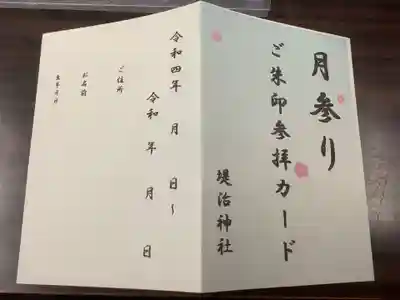 月参り
ご朱印参拝カード
堤治神社
令和四年 月 日〜
令和 年 月 日
ご住所
お名前
生年月日